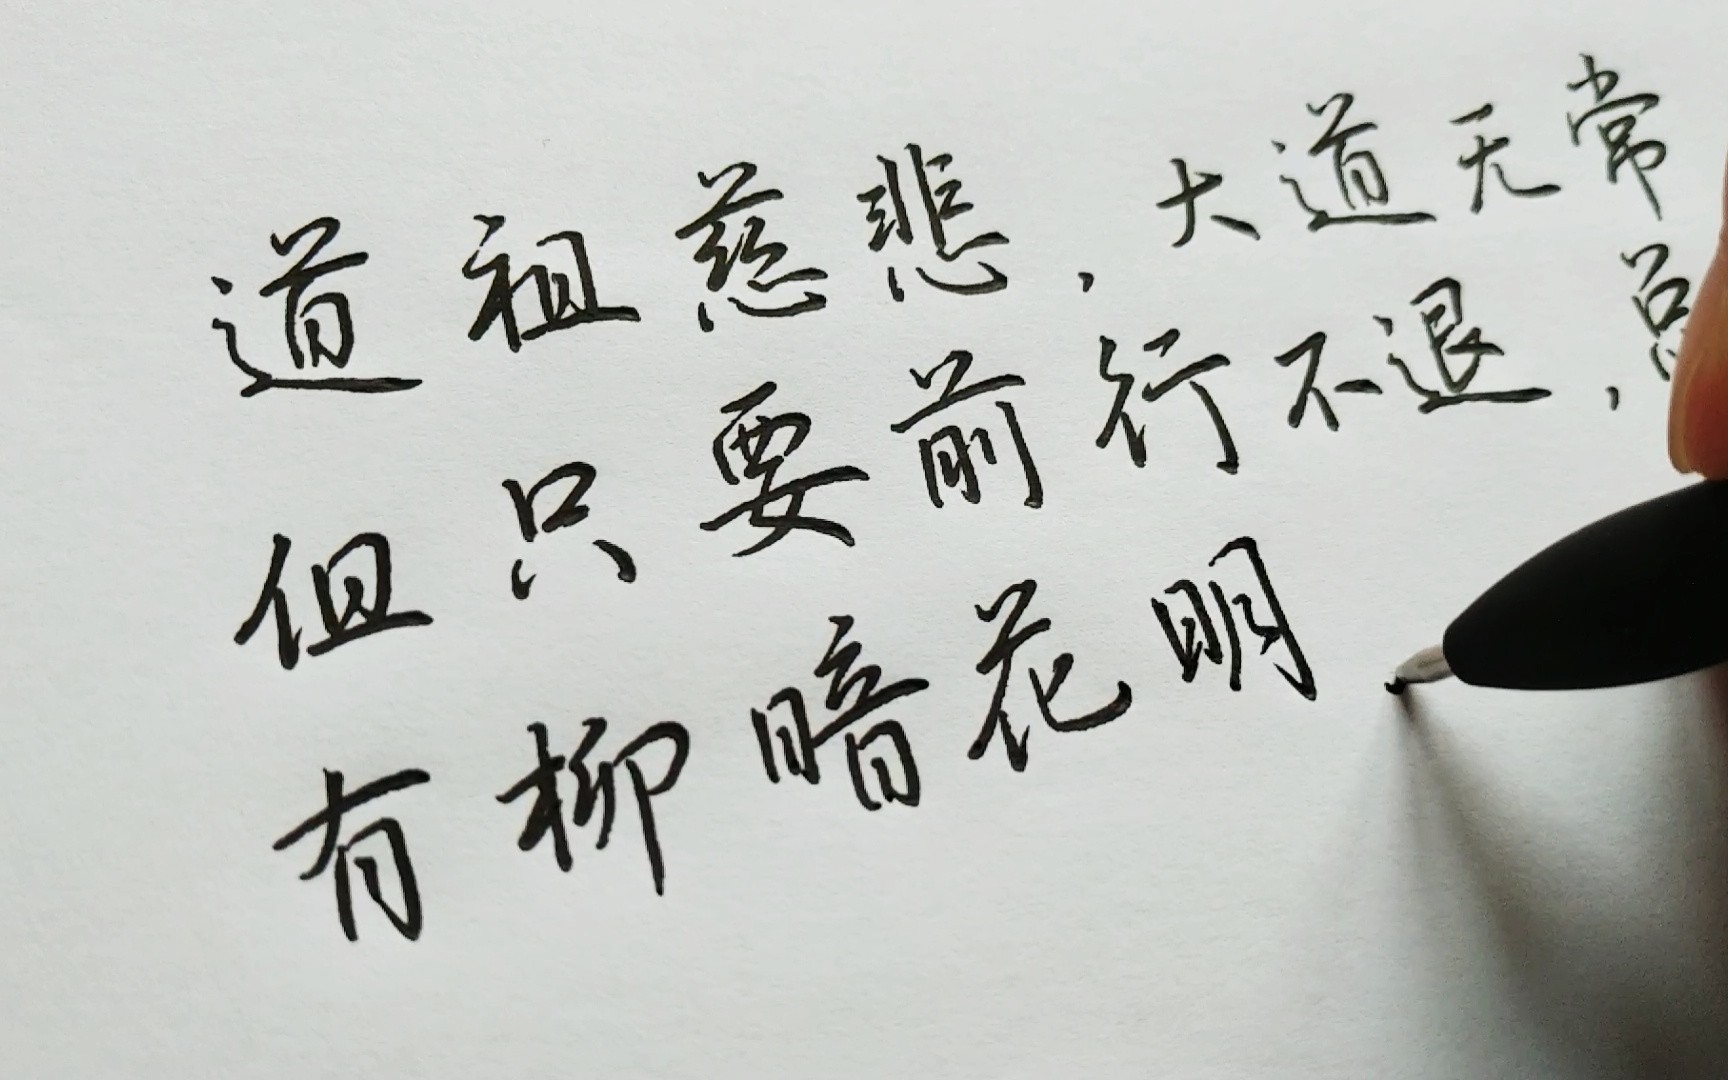 道祖慈悲，大道无常
但只要前行不退，总
有柳暗花明